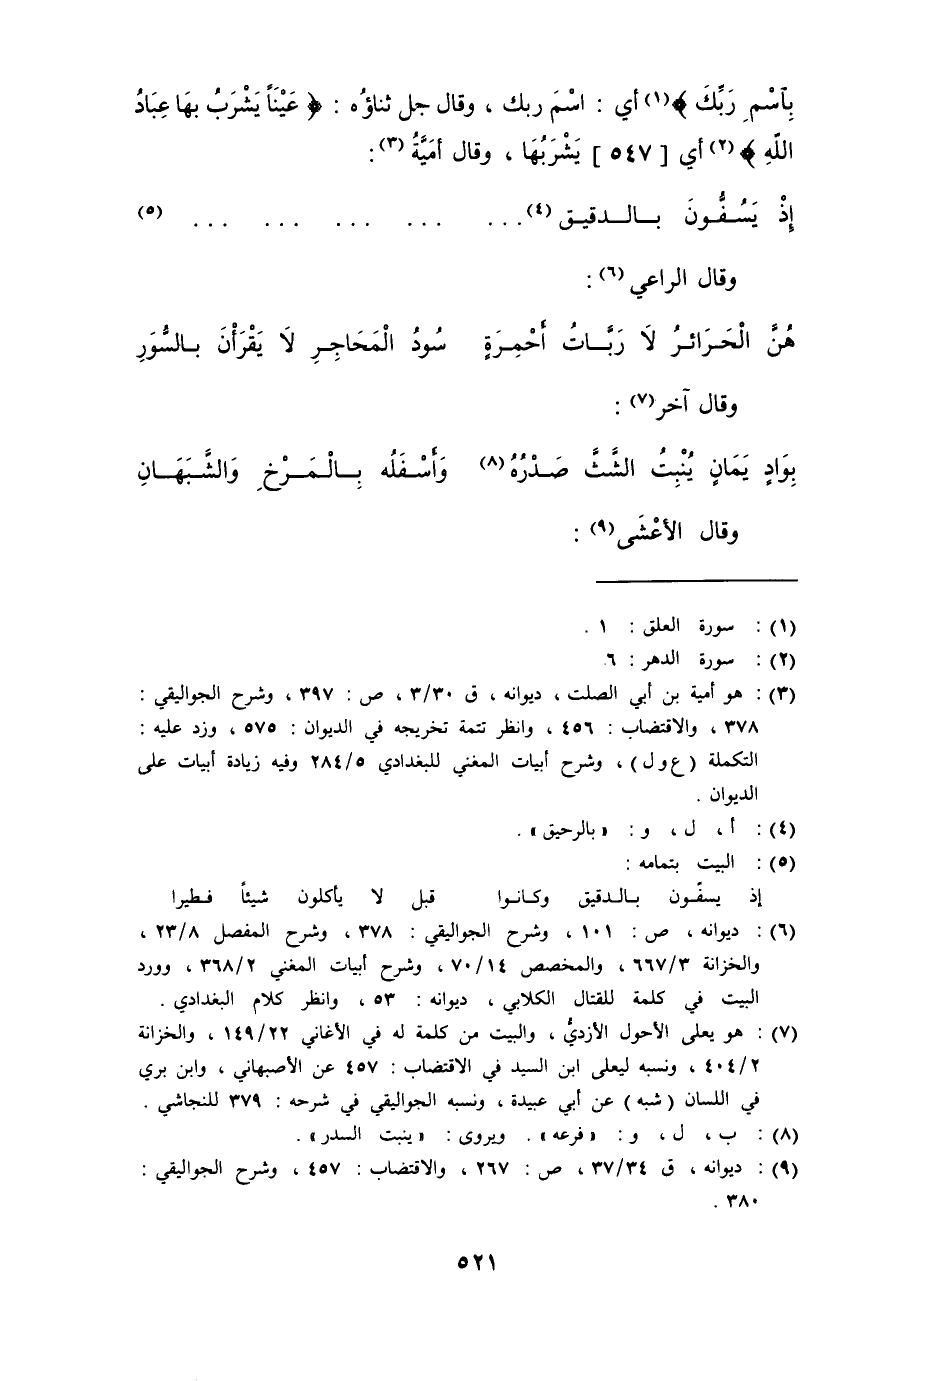 بِآسْمِ رَبِّكَ ﴾(١) أي : اسْمَ ربك ، وقال جل ثناؤه : ﴿ عَيْنَاً يَشْرَبُ بهَا عِبَادُ
اللّهِ ﴾(٢) أي [ ٥٤٧ ] يَشْرَبُهَا ، وقال أمَيَّةُ(٣):
إِذْ يَسُفُّونَ بالدقيق(٤)... ... ... ... ... (٥)
وقال الراعي(٦) :
هُنَّ الْحَرَائرُ لَا رَبَّاتُ أَحْمِرَةٍ سُودُ الْمَحَاجِرِ لَا يَقْرَأْنَ بالسُّوَرِ
وقال آخر(٧) :
بِوَادٍ يَمَانٍ يُنْبِتُ الشَّثَّ صَدْرُهُ(٨) وَأَسْفَلُه بِالْمَرْخِ وَالشَّبَهَانِ
وقال الأعْشَى(٩) :
(١) : سورة العلق : ١ .
(٢) : سورة الدهر : ٦
(٣) : هو أمية بن أبي الصلت ، ديوانه ، ق ٣/٣٠ ، ص : ٣٩٧ ، وشرح الجواليقي :
٣٧٨ ، والاقتضاب : ٤٥٦ ، وانظر تتمة تخريجه في الديوان : ٥٧٥ ، وزد عليه :
التكملة ( ع ول ) ، وشرح أبيات المغني للبغدادي ٢٨٤/٥ وفيه زيادة أبيات على
الديوان .
(٤) : أ ، ل ، و : « بالرحيق » .
(٥) : البيت بتمامه :
إذ يسفّون بالدقيق وكانوا قبل لا يأكلون شيئاً فطيرا
(٦) : ديوانه ، ص : ١٠١ ، وشرح الجواليقي : ٣٧٨ ، وشرح المفصل ٢٣/٨ ،
والخزانة ٦٦٧/٣ ، والمخصص ٧٠/١٤ ، وشرح أبيات المغني ٣٦٨/٢ ، وورد
البيت في كلمة للقتال الكلابي ، ديوانه : ٥٣ ، وانظر كلام البغدادي .
(٧) : هو يعلى الأحول الأزديُّ ، والبيت من كلمة له في الأغاني ١٤٩/٢٢ ، والخزانة
٤٠٤/٢ ، ونسبه ليعلى ابن السيد في الاقتضاب : ٤٥٧ عن الأصبهاني ، وابن بري
في اللسان ( شبه ) عن أبي عبيدة ، ونسبه الجواليقي في شرحه : ٣٧٩ للنجاشي .
(٨) : ب ، ل ، و : « فرعه » . ويروى : « ينبت السدر » .
(٩) : ديوانه ، ق ٣٧/٣٤ ، ص : ٢٦٧ ، والاقتضاب : ٤٥٧ ، وشرح الجواليقي :
٣٨٠ .
٥٢١